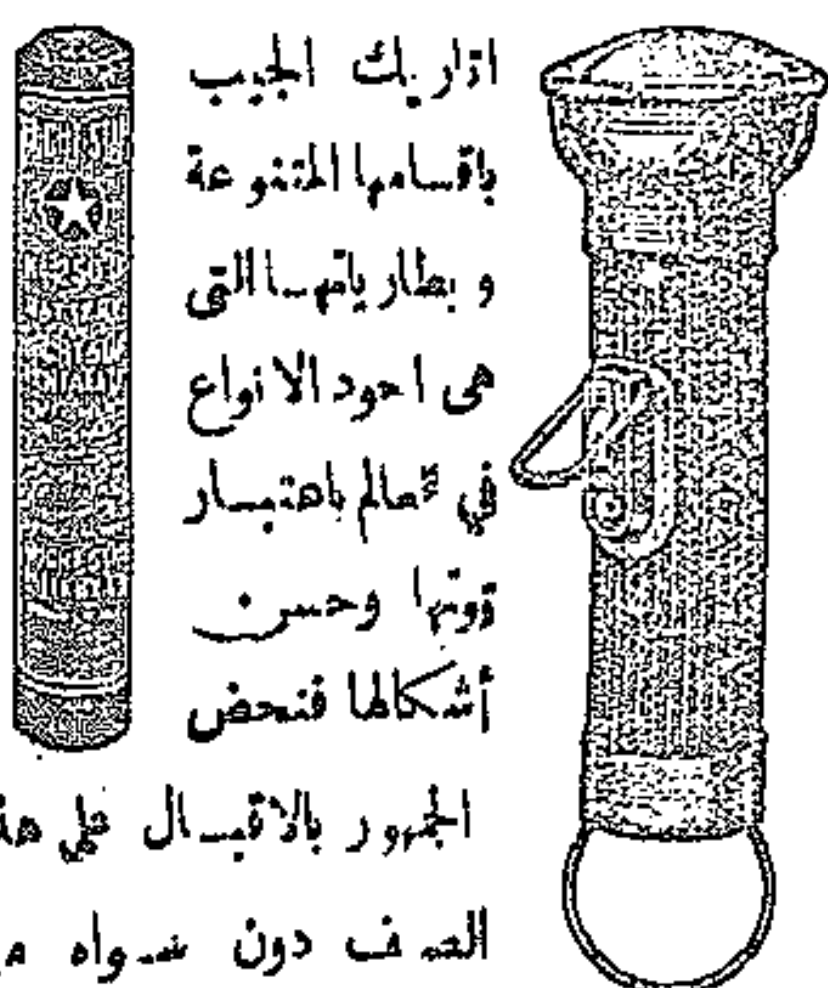 ازاريك الجيب
باقسامها المتنوعة
وبطارياتهـا التي
هى احود الانواع
في عمالم باهتبـار
قوتها وحسن
أشكالها فنحض
الجمهور بالاقبـال على هذ
الصنف دون سواه م